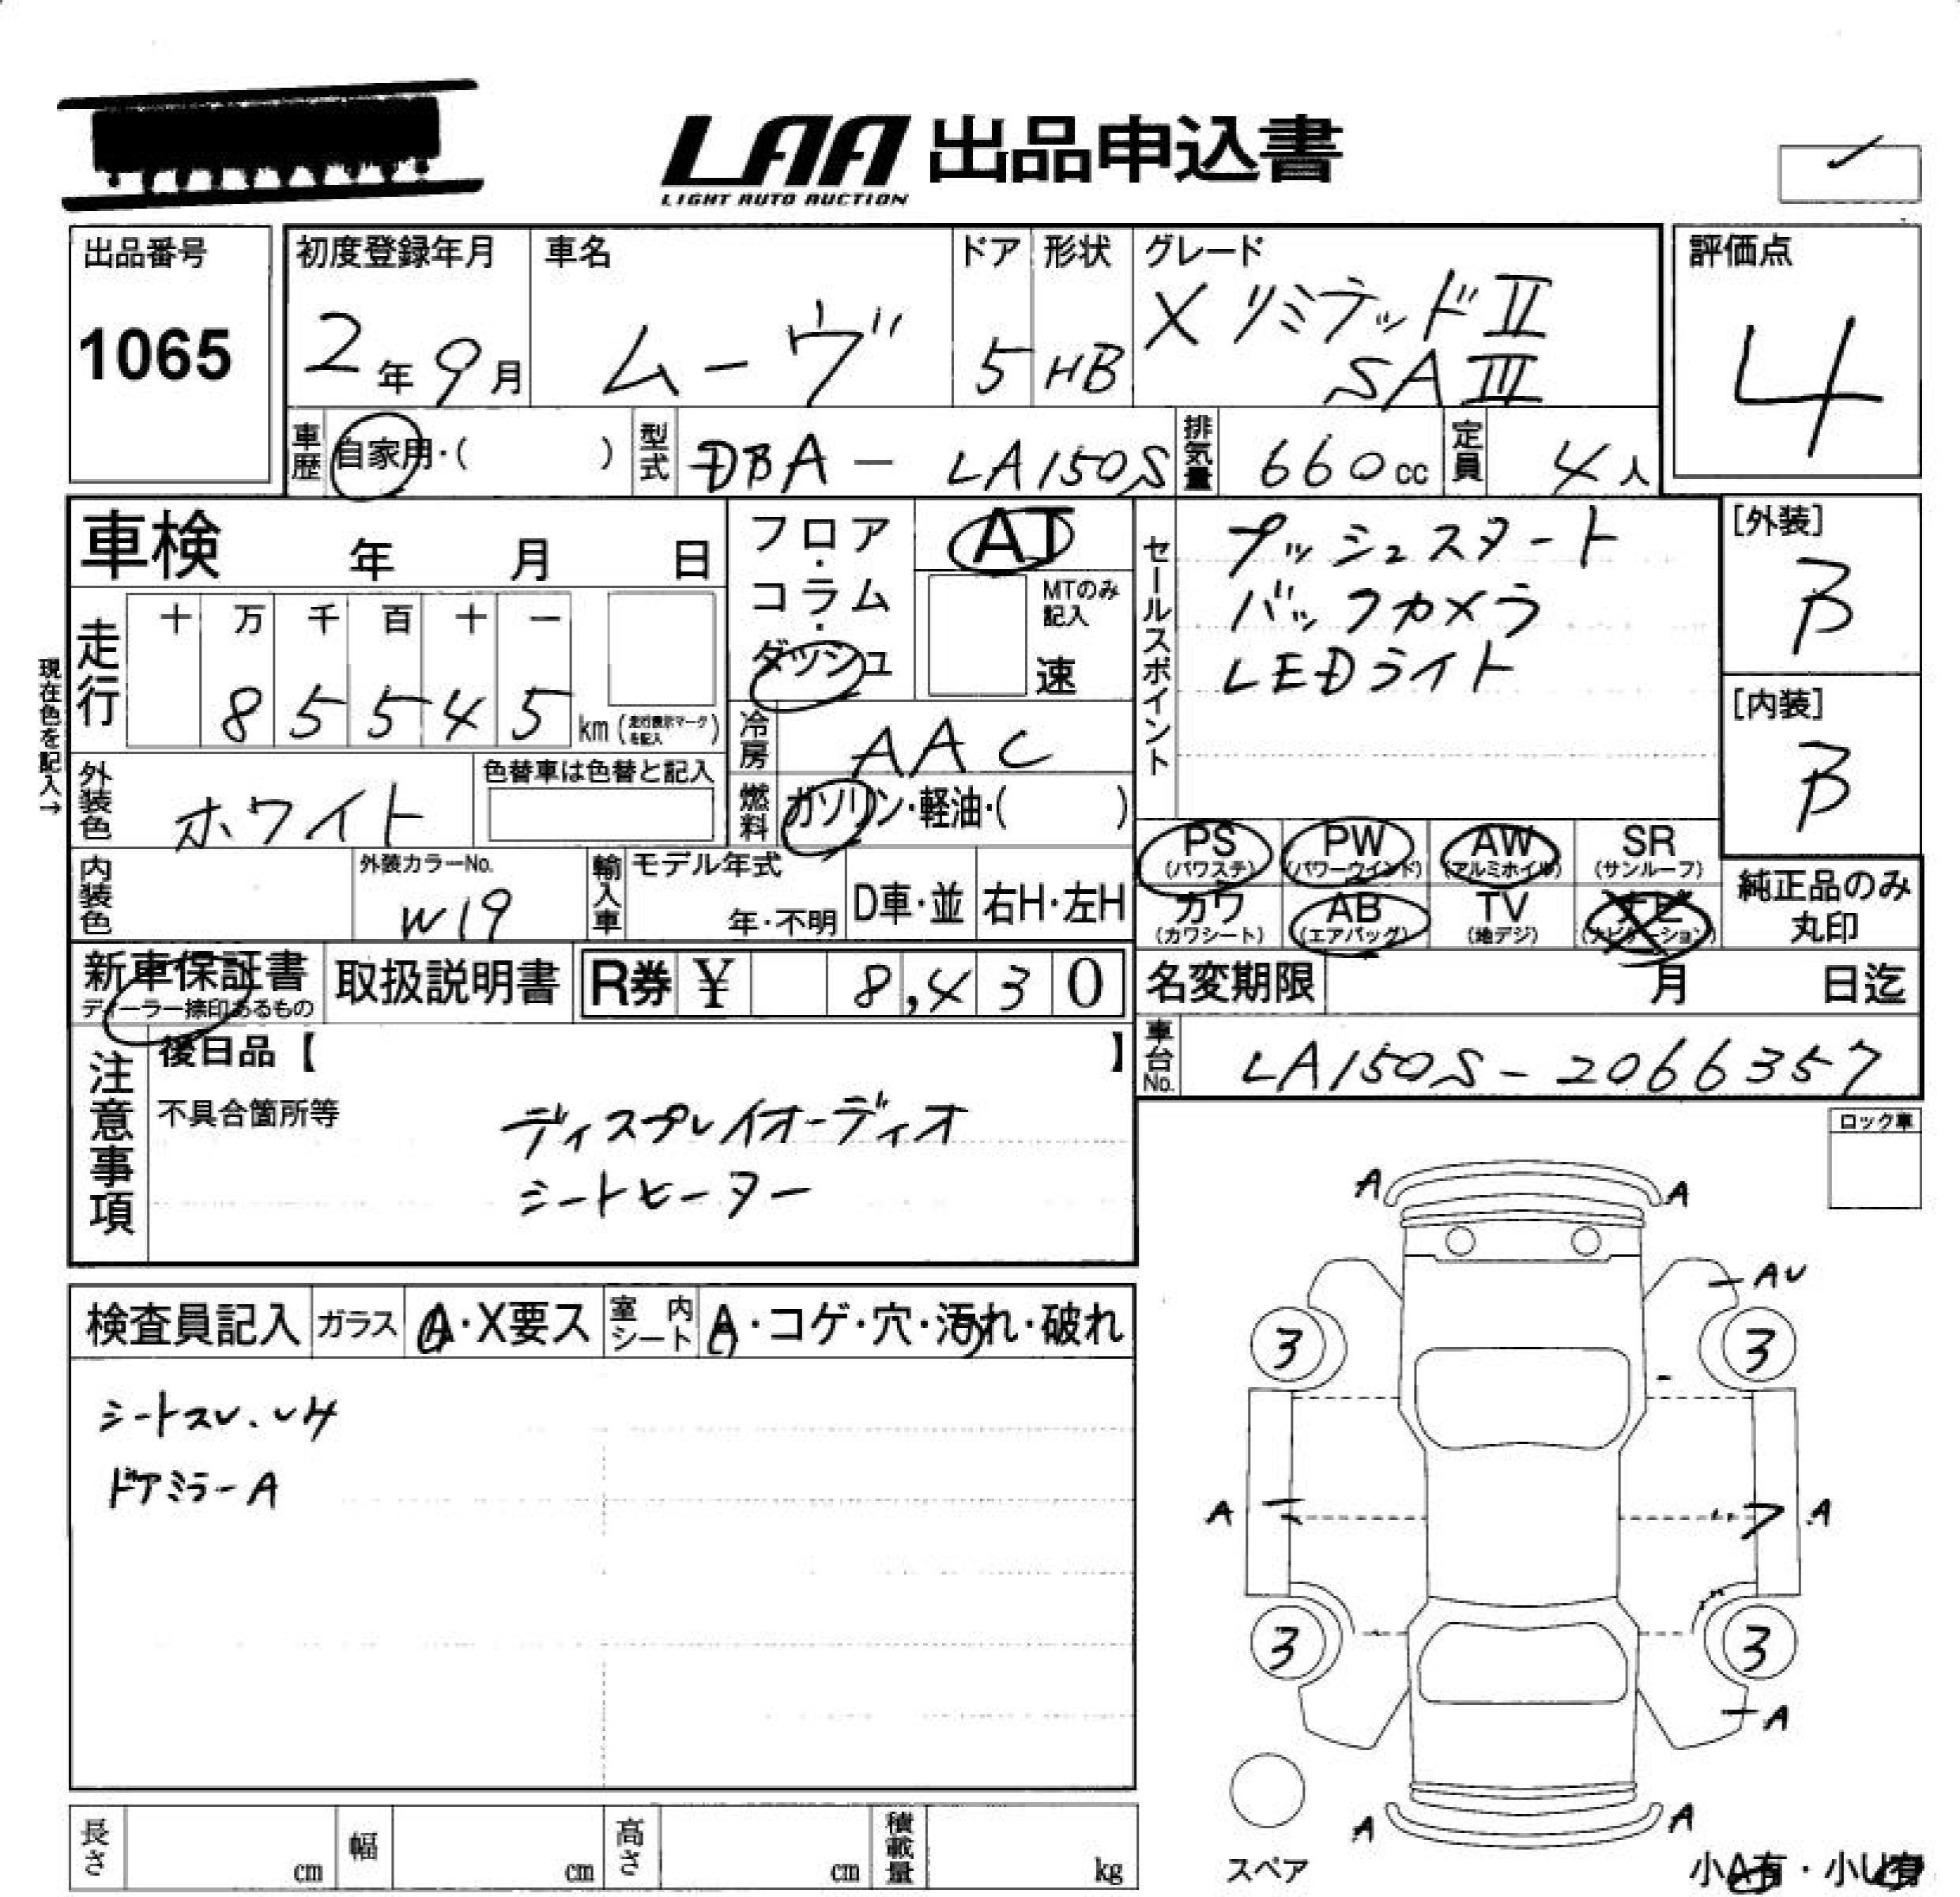 LAA 出品申込書
LIGHT AUTO AUCTION
出品番号
1065
初度登録年月
2年9月
車名
ムーヴ
ドア
5
形状
HB
グレード
X リミテッドⅡ
SAⅢ
評価点
4
車歴
自家用・( )
型式
DBA - LA150S
排気量
660cc
定員
4人
車検 年 月 日
フロア・コラム・ダッシュ
AT
MTのみ記入
速
現在色を記入→
走行
十 万 千 百 十 一
85545 km (走行表示マークを記入)
冷房
AAC
外装色
ホワイト
色替車は色替と記入
燃料
ガソリン・軽油・( )
内装色
外装カラーNo.
W19
輸入車
モデル年式
年・不明
D車・並
右H・左H
セールスポイント
プッシュスタート
バックカメラ
LEDライト
[外装]
B
[内装]
B
PS (パワステ)
PW (パワーウインド)
AW (アルミホイル)
SR (サンルーフ)
カワ (カワシート)
AB (エアバッグ)
TV (地デジ)
ナビ (ナビゲーション)
純正品のみ丸印
新車保証書
ディーラー捺印あるもの
取扱説明書
R券 ¥ 8,430
名変期限 月 日迄
車台No.
LA150S-2066357
注意事項
後日品【 】
不具合箇所等
ディスプレイオーディオ
シートヒーター
ロック車
検査員記入
ガラス
A・X要ス
室内シート
A・コゲ・穴・汚れ・破れ
シートスレ、シミ
ドアミラーA
A
A
AU
3
3
A
A
3
3
A
A
A
スペア
小A有・小U有
長さ cm
幅 cm
高さ cm
積載量 kg